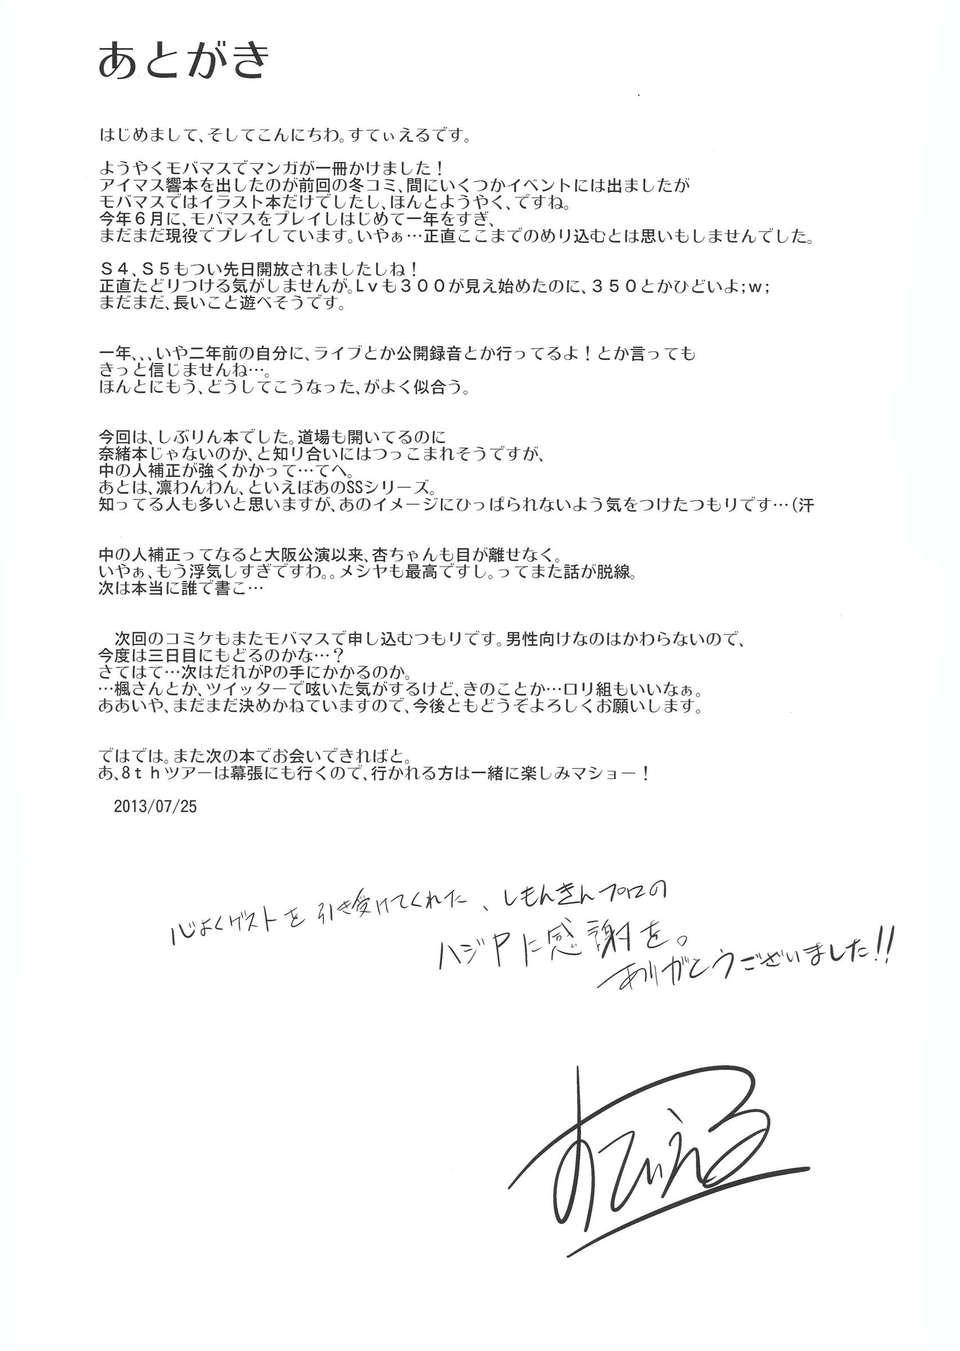 あとがき
はじめまして、そしてこんにちわ。すてぃえるです。
ようやくモバマスでマンガが一冊かけました！
アイマス響本を出したのが前回の冬コミ、間にいくつかイベントには出ましたが
モバマスではイラスト本だけでしたし、ほんとようやく、ですね。
今年６月に、モバマスをプレイしはじめて一年をすぎ、
まだまだ現役でプレイしています。いやぁ…正直ここまでのめり込むとは思いもしませんでした。
Ｓ４、Ｓ５もつい先日開放されましたしね！
正直たどりつける気がしませんが。Ｌｖも３００が見え始めたのに、３５０とかひどいよ;w;
まだまだ、長いこと遊べそうです。
一年、、、いや二年前の自分に、ライブとか公開録音とか行ってるよ！とか言っても
きっと信じませんね…。
ほんとにもう、どうしてこうなった、がよく似合う。
今回は、しぶりん本でした。道場も開いてるのに
奈緒本じゃないのか、と知り合いにはつっこまれそうですが、
中の人補正が強くかかって…てへ。
あとは、凛わんわん、といえばあのSSシリーズ。
知ってる人も多いと思いますが、あのイメージにひっぱられないよう気をつけたつもりです…（汗
中の人補正ってなると大阪公演以来、杏ちゃんも目が離せなく。
いやぁ、もう浮気しすぎですわ。。メシヤも最高ですし。ってまた話が脱線。
次は本当に誰で書こ…
次回のコミケもまたモバマスで申し込むつもりです。男性向けなのはかわらないので、
今度は三日目にもどるのかな…？
さてはて…次はだれがPの手にかかるのか。
…楓さんとか、ツイッターで呟いた気がするけど、きのことか…ロリ組もいいなぁ。
ああいや、まだまだ決めかねていますので、今後ともどうぞよろしくお願いします。
ではでは。また次の本でお会いできればと。
あ、８ｔｈツアーは幕張にも行くので、行かれる方は一緒に楽しみマショー！
2013/07/25
心よくゲストを引き受けてくれた、しもんきんプロの
ハジPに感謝を。
ありがとうございました!!
すてぃえる